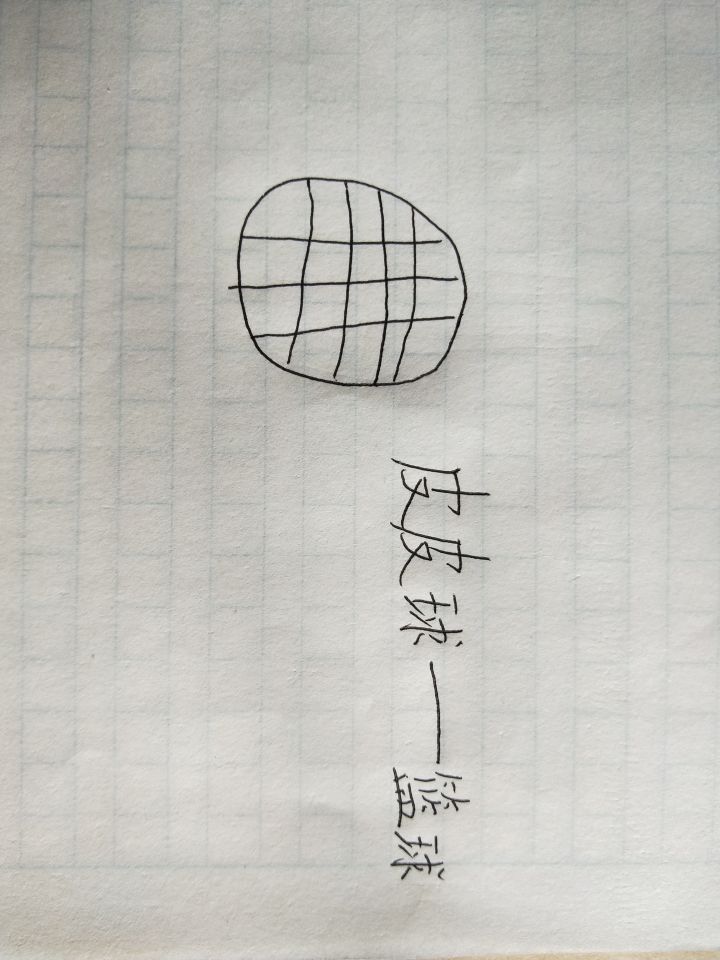 皮皮球——篮球